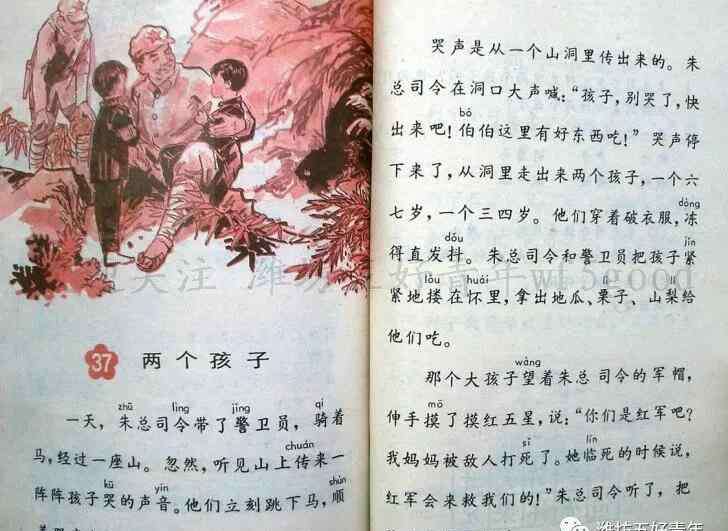 37 两个孩子
zhū lìng jǐng qí
一天，朱总司令带了警卫员，骑着
chuán
马，经过一座山。忽然，听见山上传来一
kū yīn shùn
阵阵孩子哭的声音。他们立刻跳下马，顺
哭声是从一个山洞里传出来的。朱
总司令在洞口大声喊：“孩子，别哭了，快
bó
出来吧！伯伯这里有好东西吃！”哭声停
下来了，从洞里走出来两个孩子，一个六
dòng
七岁，一个三四岁。他们穿着破衣服，冻
dǒu jǐn
得直发抖。朱总司令和警卫员把孩子紧
lǒu huái lì
紧地搂在怀里，拿出地瓜、栗子、山梨给
他们吃。
wàng
那个大孩子望着朱总司令的军帽，
mō
伸手摸了摸红五星，说：“你们是红军吧？
sǐ lín
我妈妈被敌人打死了。她临死的时候说，
红军会来救我们的！”朱总司令听了，把
关注 潍坊五好青年wf5good
潍坊五好青年